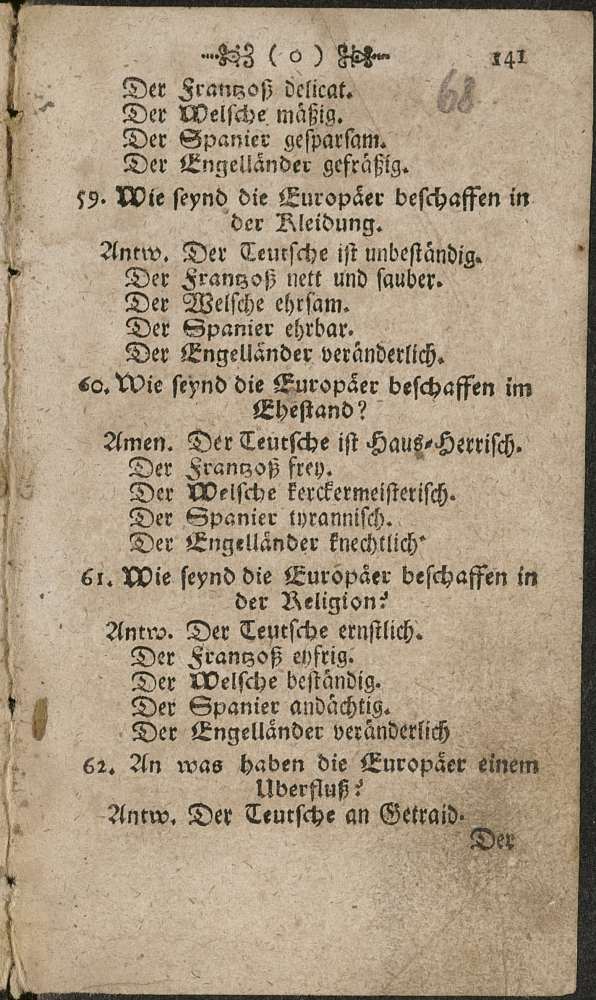 ( o ) 141
68
Der Frantzoß delicat.
Der Welsche mäßig.
Der Spanier gesparsam.
Der Engelländer gefräßig.
59. Wie seynd die Europäer beschaffen in
der Kleidung.
Antw. Der Teutsche ist unbeständig.
Der Frantzoß nett und sauber.
Der Welsche ehrsam.
Der Spanier ehrbar.
Der Engelländer veränderlich.
60. Wie seynd die Europäer beschaffen im
Ehestand?
Amen. Der Teutsche ist Haus-Herrisch.
Der Frantzoß frey.
Der Welsche kerckermeisterisch.
Der Spanier tyrannisch.
Der Engelländer knechtlich.
61. Wie seynd die Europäer beschaffen in
der Religion?
Antw. Der Teutsche ernstlich.
Der Frantzoß eyfrig.
Der Welsche beständig.
Der Spanier andächtig.
Der Engelländer veränderlich
62. An was haben die Europäer einem
Uberfluß?
Antw. Der Teutsche an Getraid.
Der